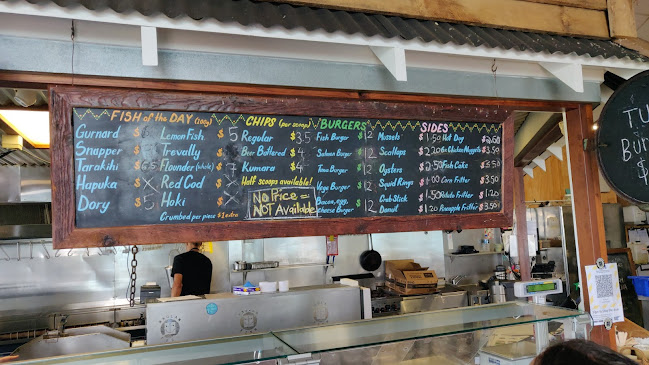 FISH of the DAY CHIPS (per scoop) BURGERS SIDES
Gurnard $ Lemon Fish $ 5 Regular $ 3.5 Fish Burger 12 Mussels $ 1.50 Hot Dog
Snapper $ Trevally Beer Battered 4 Salmon Burger 12 Scallops 2.20 6x Chicken Nuggets $3.50
Tarakihi 6.5 Flounder (whole) Kumara $ 4 Tuna Burger 12 Oysters 2.50 Fish Cake $3.50
Hapuka X Red Cod X Half scoops available! Vege Burger 12 Squid Rings Corn Fritter
Dory $ 5 Hoki X No Price = Bacon, egg, Crab Stick $ 1.50 Potato Fritter
Crumbed per piece $ 1 extra NOT Available cheese Burger 12 Donut 1.20 Pineapple Fritter $3.50
TU
BU
$